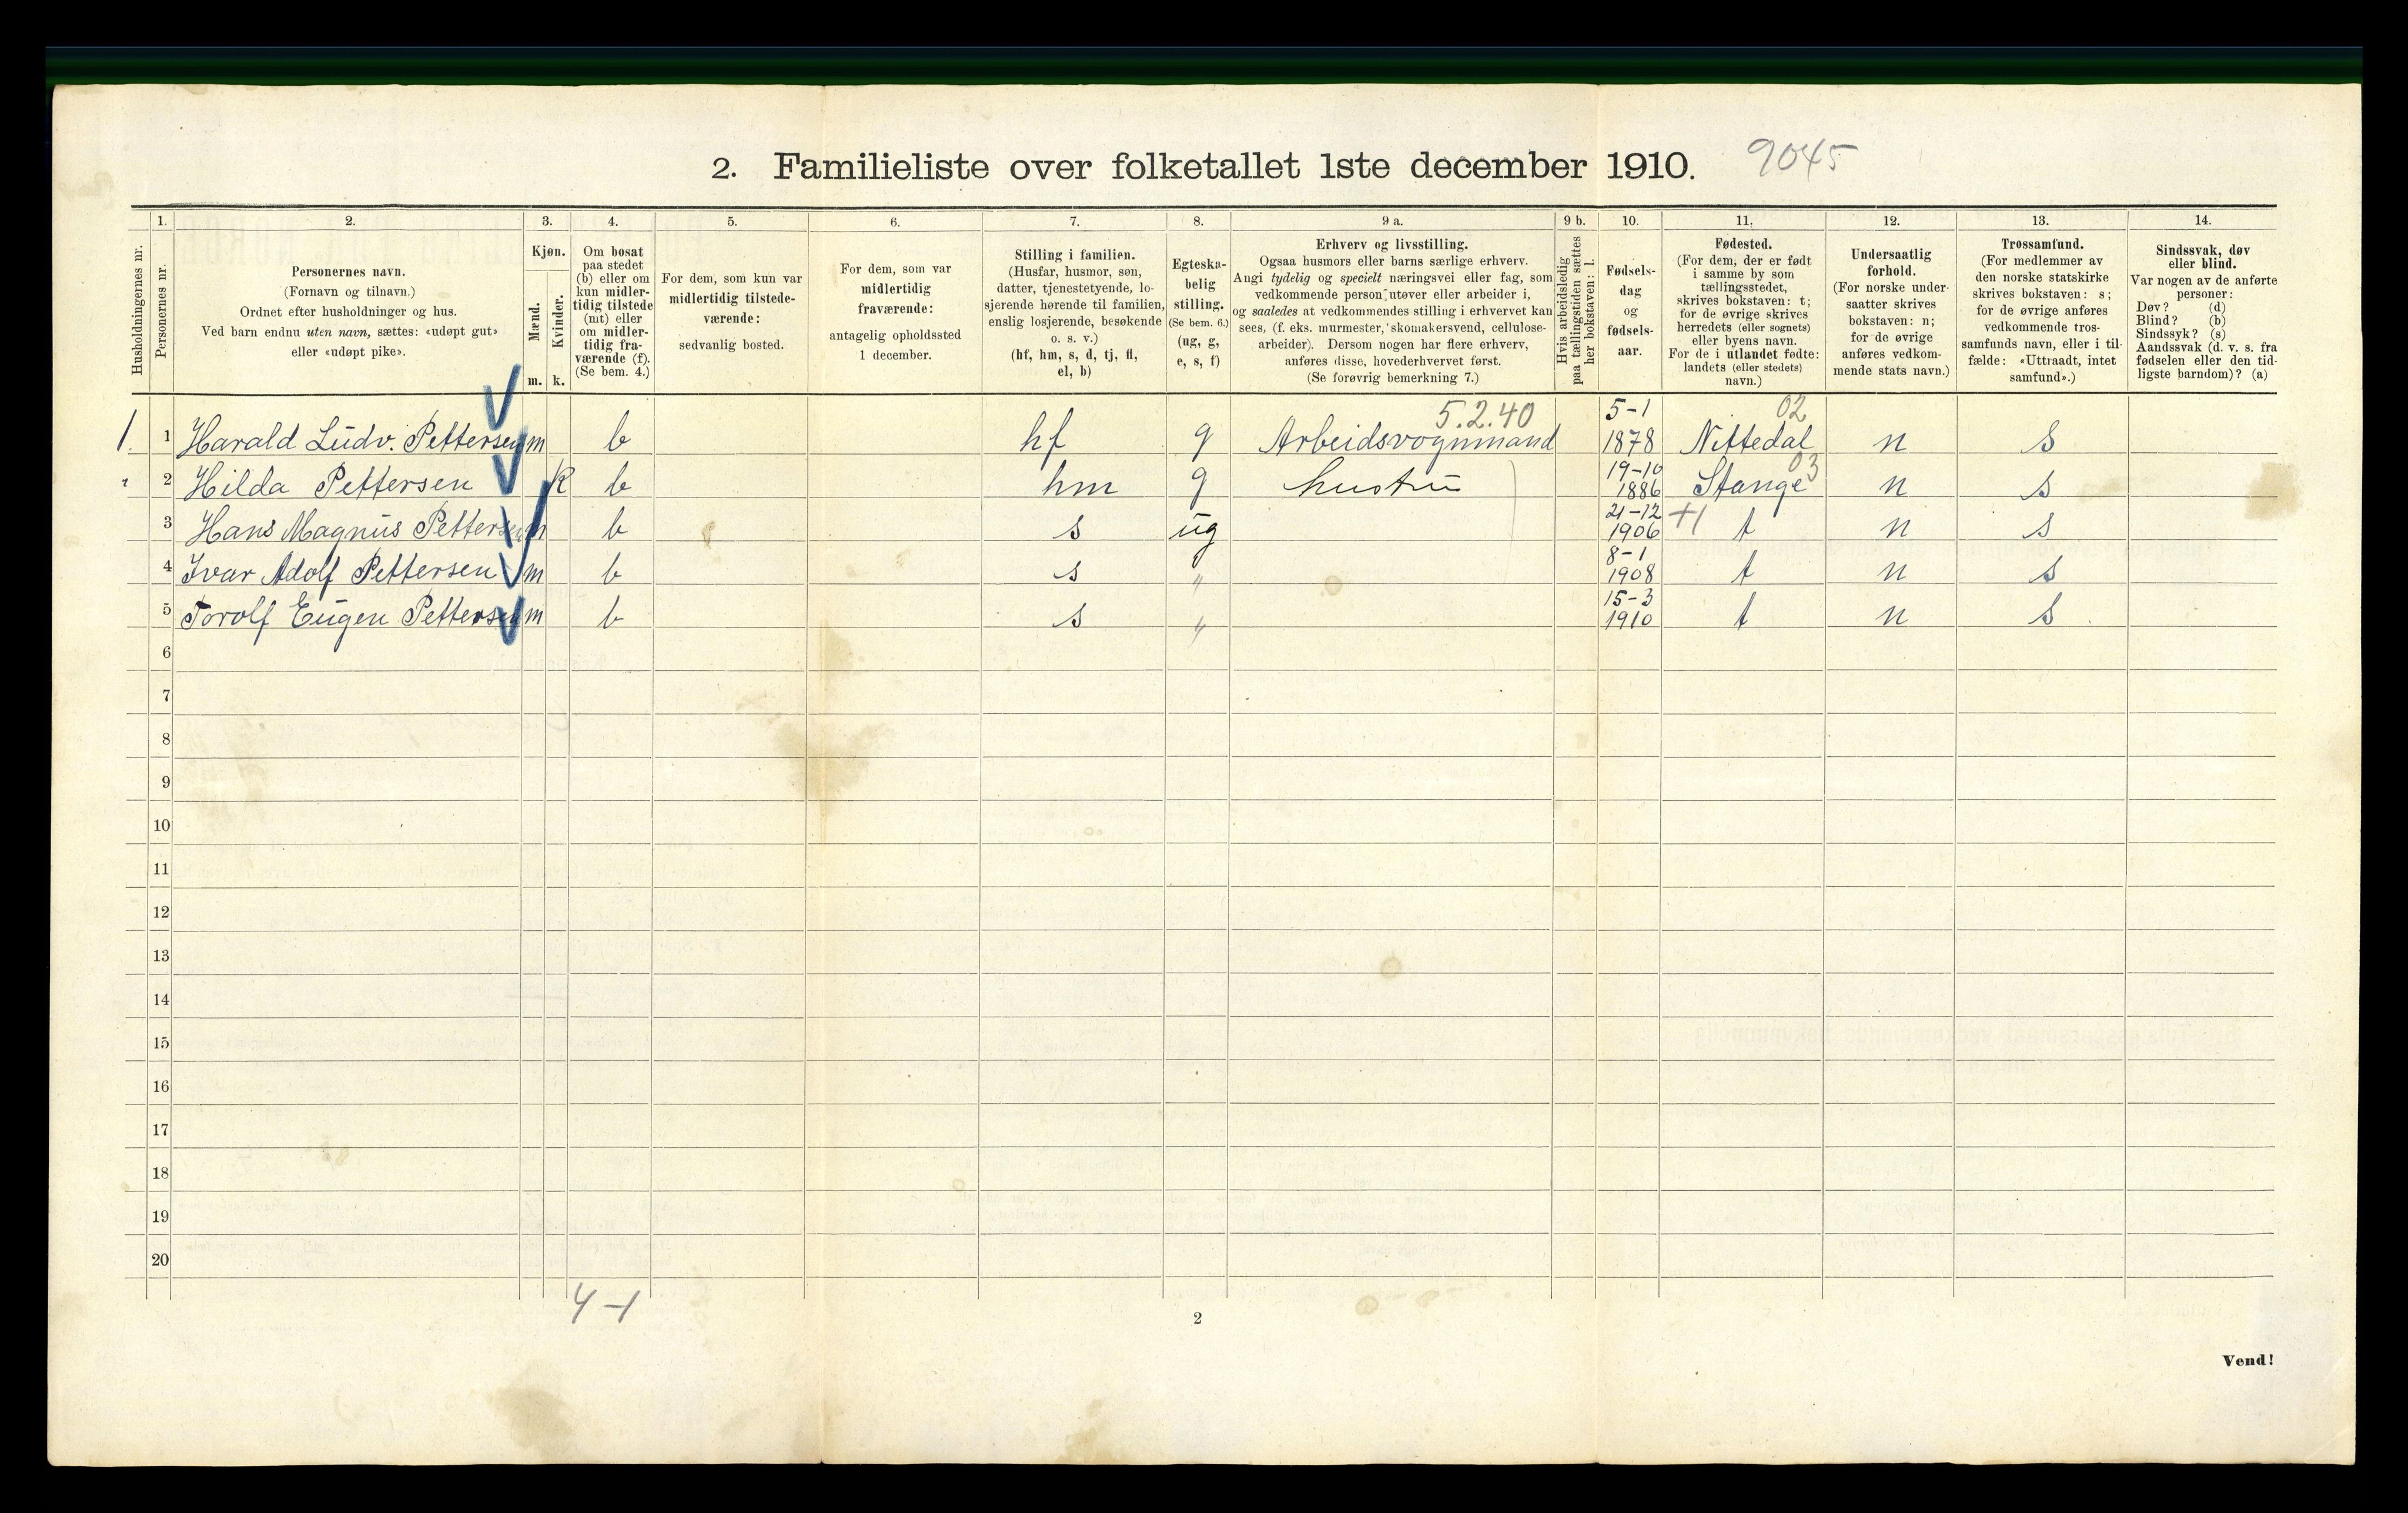 2. Familieliste over folketallet 1ste december 1910. 9045
1. 2. 3. 4. 5. 6. 7. 8. 9 a. 9 b. 10. 11. 12. 13. 14.
Husholdningernes nr.
Personernes nr.
Personernes navn.
(Fornavn og tilnavn.)
Ordnet efter husholdninger og hus.
Ved barn endnu uten navn, sættes: «udøpt gut»
eller «udøpt pike».
Kjøn.
Mænd.
Kvinder.
m. k.
Om bosat
paa stedet
(b) eller om
kun midler-
tidig tilstede
(mt) eller
om midler-
tidig fra-
værende (f).
(Se bem. 4.)
For dem, som kun var
midlertidig tilstede-
værende:
sedvanlig bosted.
For dem, som var
midlertidig
fraværende:
antagelig opholdssted
1 december.
Stilling i familien.
(Husfar, husmor, søn,
datter, tjenestetyende, lo-
sjerende hørende til familien,
enslig losjerende, besøkende
o. s. v.)
(hf, hm, s, d, tj, fl,
el, b)
Egteska-
belig
stilling.
(Se bem. 6.)
(ug, g,
e, s, f)
Erhverv og livsstilling.
Ogsaa husmors eller barns særlige erhverv.
Angi tydelig og specielt næringsvei eller fag, som
vedkommende person utøver eller arbeider i,
og saaledes at vedkommendes stilling i erhvervet kan
sees, (f. eks. murmester, skomakersvend, cellulose-
arbeider). Dersom nogen har flere erhverv,
anføres disse, hovederhvervet først.
(Se forøvrig bemerkning 7.)
Hvis arbeidsledig
paa tællingstiden sættes
her bokstaven: l.
Fødsels-
dag
og
fødsels-
aar.
Fødested.
(For dem, der er født
i samme by som
tællingsstedet,
skrives bokstaven: t;
for de øvrige skrives
herredets (eller sognets)
eller byens navn.
For de i utlandet fødte:
landets (eller stedets)
navn.)
Undersaatlig
forhold.
(For norske under-
saatter skrives
bokstaven: n;
for de øvrige
anføres vedkom-
mende stats navn.)
Trossamfund.
(For medlemmer av
den norske statskirke
skrives bokstaven: s;
for de øvrige anføres
vedkommende tros-
samfunds navn, eller i til-
fælde: «Uttraadt, intet
samfund».)
Sindssvak, døv
eller blind.
Var nogen av de anførte
personer:
Døv? (d)
Blind? (b)
Sindssyk? (s)
Aandssvak (d. v. s. fra
fødselen eller den tid-
ligste barndom)? (a)
5.2.40 5-1 02
1. 1 Harald Ludv. Pettersen m b hf g Arbeidsvognmand 1878 Nittedal n s
19-10 03
2 Hilda Pettersen k b hm g hustru 1886 Stange n s
21-12
3 Hans Magnus Pettersen m b s ug 1906 t n s
8-1
4 Ivar Adolf Pettersen m b s " 1908 t n s
15-3
5 Torolf Eugen Pettersen m b s " 1910 t n s
6
7
8
9
10
11
12
13
14
15
16
17
18
19
20
4-1
2
Vend!